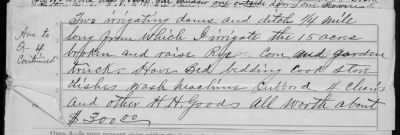 Two irrigating dams and ditch 1/4 mile
long from Which I irrigate the 15 acres
broken and raise Rye Corn and garden
truck. Have Bed bedding Cook stove
dishes Wash Machine Cubbord 4 Chairs
and other H H Goods All Worth about
$300.00
Ans to
Q-4
Continued